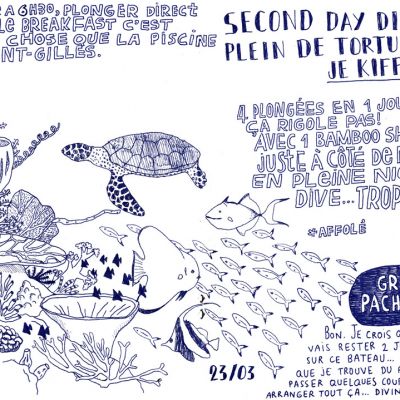 À 6H30, PLONGER DIRECT
LE BREAKFAST C'EST
CHOSE QUE LA PISCINE
NT-GILLES.
SECOND DAY DI
PLEIN DE TORTU
JE KIFF
4 PLONGÉES EN 1 JOU
ÇA RIGOLE PAS!
AVEC 1 BAMBOO SH
JUSTE À CÔTÉ DE
EN PLEINE NI
DIVE... TROP
*AFFOLÉ
GR
PACH
23/03
BON. JE CROIS Q
VAIS RESTER 2 J
SUR CE BATEAU...
QUE JE TROUVE DU
PASSER QUELQUES COU
ARRANGER TOUT ÇA... DIVIN